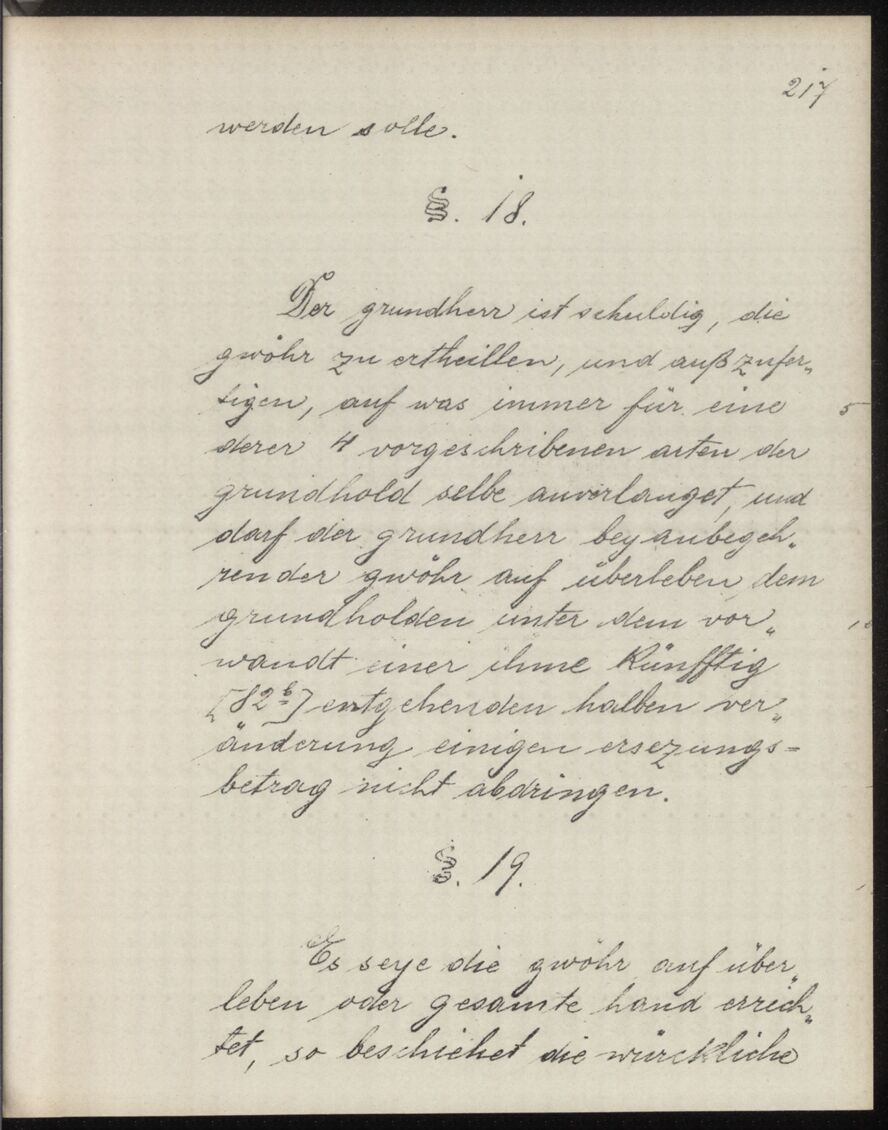 217
werden solle.
§. 18.
Der grundherr ist schuldig, die
gwöhr zu ertheillen, und außzufer„
tigen, auf was immer für eine
5
derer 4 vorgeschribenen arten der
grundhold selbe anverlanget, und
darf der grundherr bey anbegeh„
render gwöhr auf überleben dem
grundholden unter dem vor„
wandt einer ihme künfftig
[82b] entgehenden halben ver„
änderung einigen ersezungs=
betrag nicht abdringen.
§. 19.
Es seye die gwöhr auf über„
leben oder gesamte hand errich„
tet, so beschiehet die würckliche